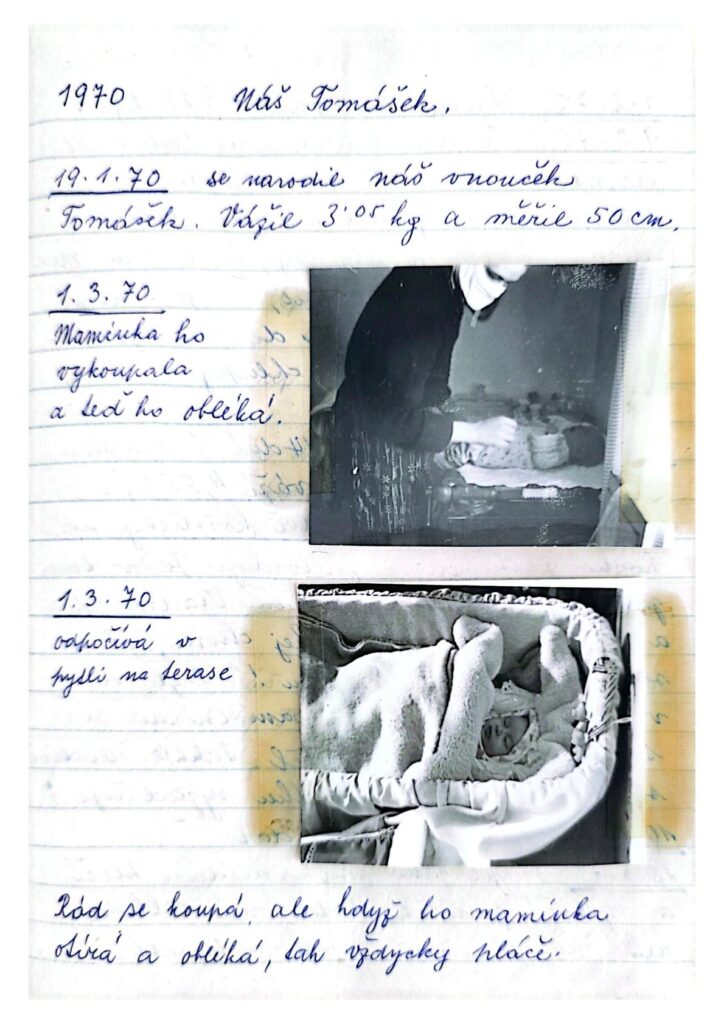 1970 Náš Tomášek.
19.1.70 se narodil náš vnouček
Tomášek. Vážil 3'05 kg a měřil 50 cm.
1.3.70
Maminka ho
vykoupala
a teď ho obléká.
1.3.70
odpočívá v
pytli na terase
Rád se koupá, ale když ho maminka
otírá a obléká, tak vždycky pláče.